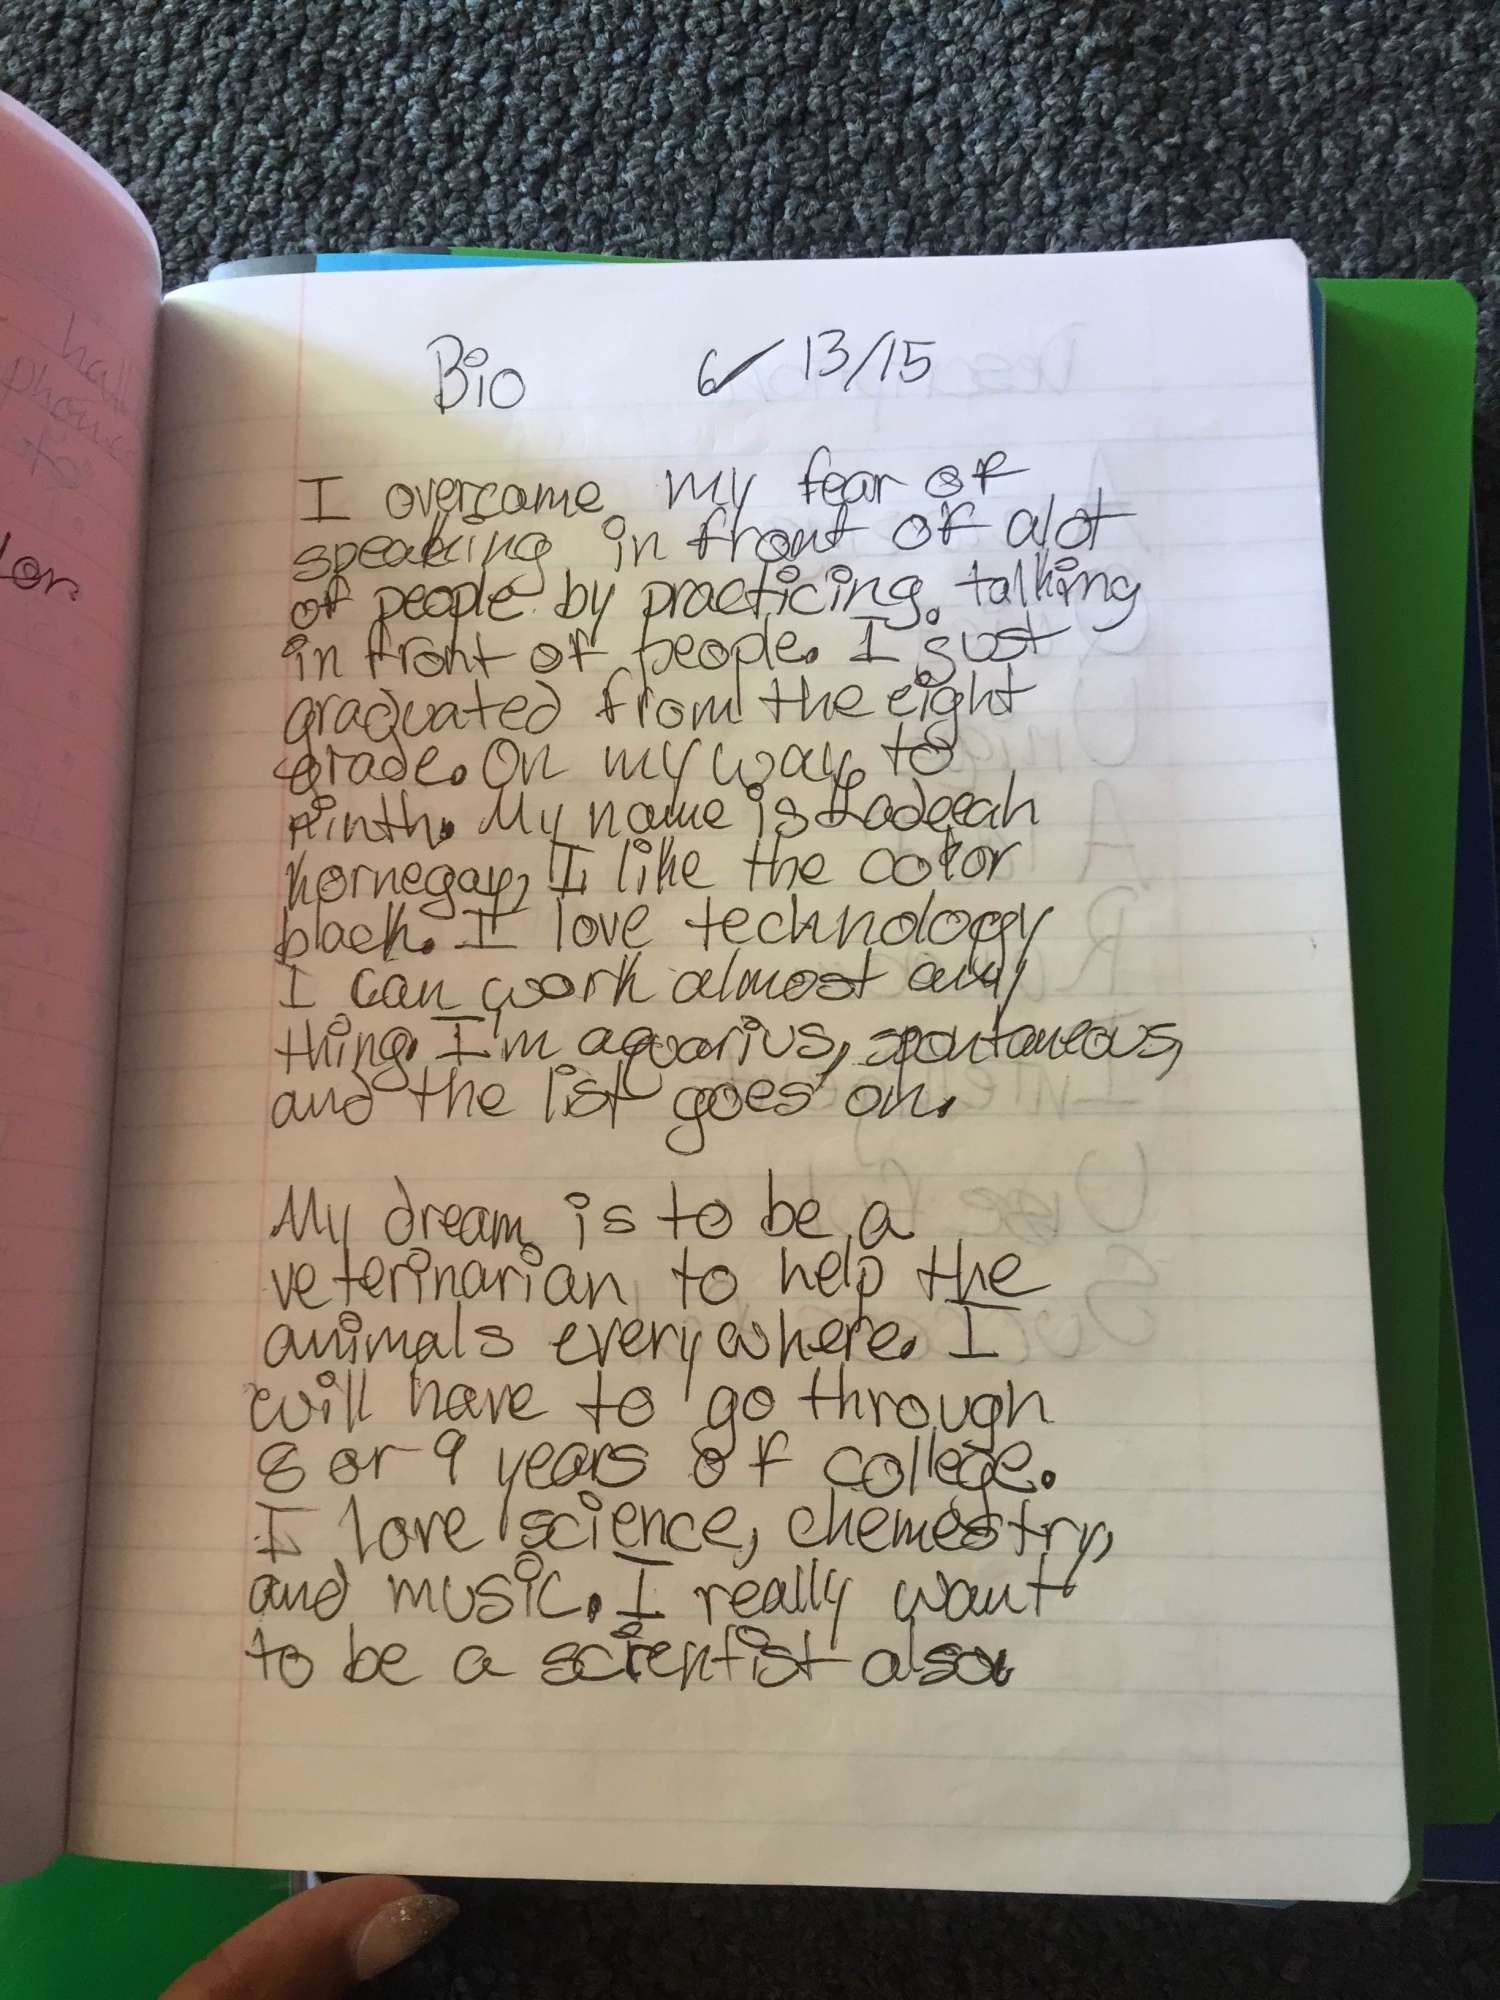 Bio 6/13/15
I overcome my fear of
speaking in front of alot
of people by practicing. talking
in front of people. I just
graduated from the eight
grade. On my way to
ninth. My name is
Kornegay, I like the color
black. I love technology
I can work almost any
thing. I'm aquarius, spontaneous,
and the list goes on.
My dream is to be a
veterinarian to help the
animals everywhere. I
will have to go through
8 or 9 years of college.
I love science, chemestry,
and music. I really want
to be a scientist also.